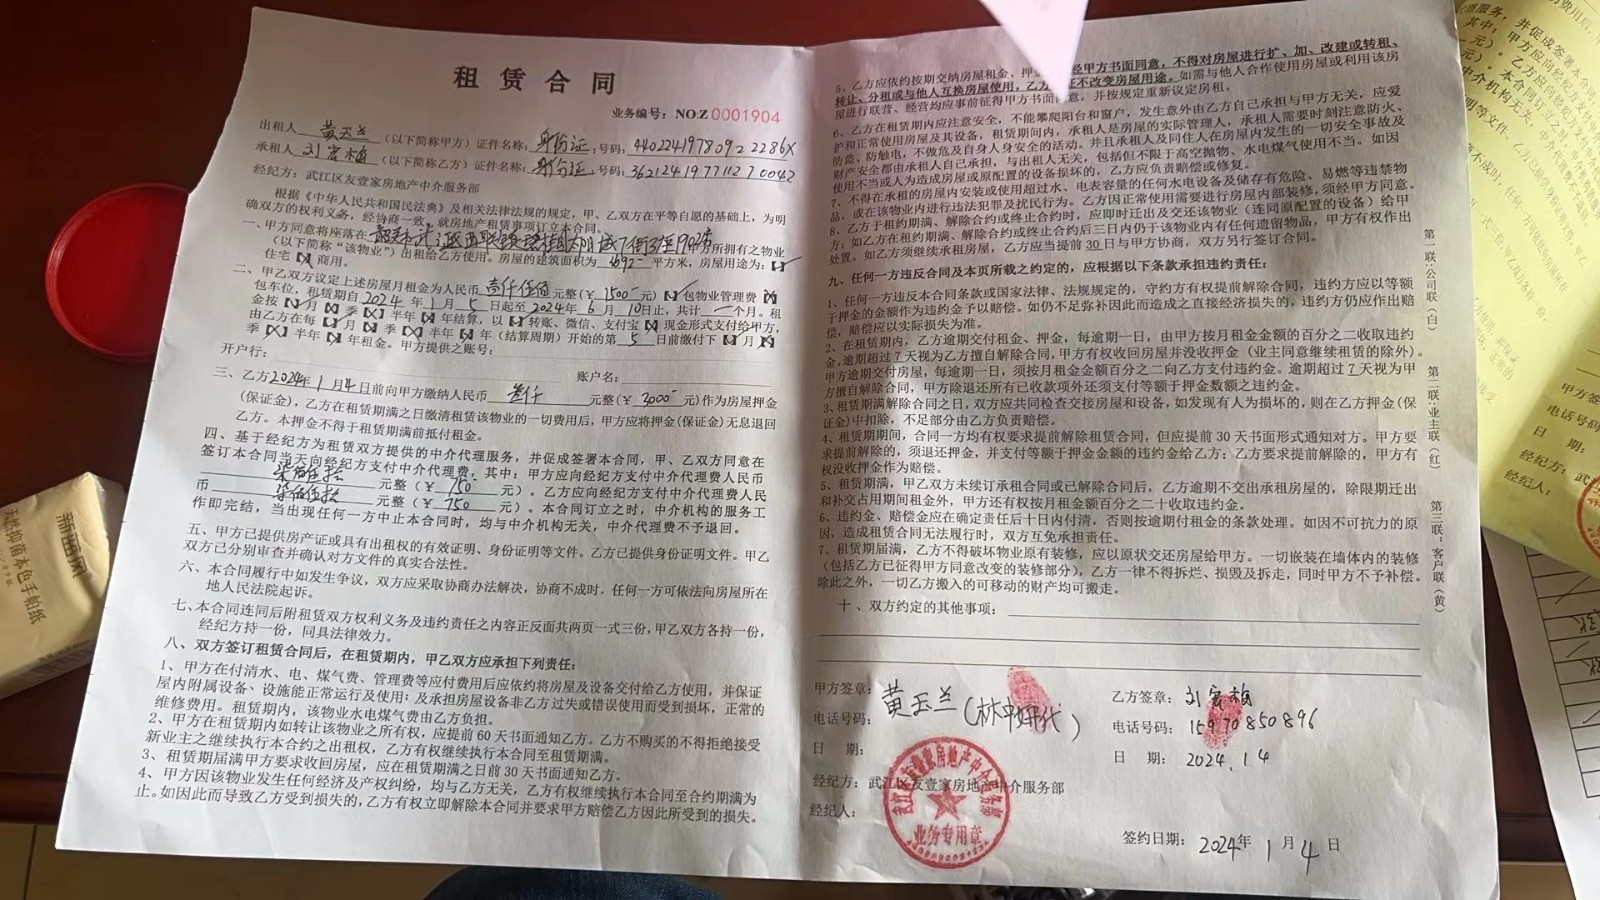 租赁合同
业务编号：NO:Z 0001904
出租人 黄玉兰 （以下简称甲方）证件名称：身份证；号码：44022419780922286X
承租人 刘宏植 （以下简称乙方）证件名称：身份证；号码：362124197711270042
经纪方：武江区友壹家房地产中介服务部
根据《中华人民共和国民法典》及相关法律法规的规定，甲、乙双方在平等自愿的基础上，为明
确双方的权利义务，经协商一致，就房地产租赁事项订立本合同。
一、甲方同意将座落在 韶关市武江区西联镇 阳城7街3座1902房 所拥有之物业
（以下简称“该物业”）出租给乙方使用。房屋的建筑面积为 平方米，房屋用途为：【✓】
住宅【×】商用。
二、甲乙双方议定上述房屋月租金为人民币 壹仟伍佰 元整（￥ 1500 元）【✓】包物业管理费【×】
包车位，租赁期自2024年1月5日起至2024年6月10日止，共计 个月。租
金按【✓】月【×】季【×】半年【×】年结算，以【✓】转账、微信、支付宝【×】现金形式支付给甲方，
由乙方在每【✓】月【×】季【×】半年【×】年（结算周期）开始的第 5 日前缴付下【✓】月【×】
季【×】半年【×】年租金。甲方提供之账号：
开户行： 账户名：
三、乙方2024年1月4日前向甲方缴纳人民币 叁仟 元整（￥ 3000 元）作为房屋押金
（保证金），乙方在租赁期满之日缴清租赁该物业的一切费用后，甲方应将押金（保证金）无息退回
乙方。本押金不得于租赁期满前抵付租金。
四、基于经纪方为租赁双方提供的中介代理服务，并促成签署本合同，甲、乙双方同意在
签订本合同当天向经纪方支付中介代理费：其中：甲方应向经纪方支付中介代理费人民币
柒佰伍拾 元整（￥ 750 元）。乙方应向经纪方支付中介代理费人民
币 柒佰伍拾 元整（￥ 750 元）。本合同订立之时，中介机构的服务工
作即完结，当出现任何一方中止本合同时，均与中介机构无关，中介代理费不予退回。
五、甲方已提供房产证或具有出租权的有效证明、身份证明等文件。乙方已提供身份证明文件。甲乙
双方已分别审查并确认对方文件的真实合法性。
六、本合同履行中如发生争议，双方应采取协商办法解决，协商不成时，任何一方可依法向房屋所在
地人民法院起诉。
七、本合同连同后附租赁双方权利义务及违约责任之内容正反面共两页一式三份，甲乙双方各持一份，
经纪方持一份，同具法律效力。
八、双方签订租赁合同后，在租赁期内，甲乙双方应承担下列责任：
1、甲方在付清水、电、煤气费、管理费等应付费用后应依约将房屋及设备交付给乙方使用，并保证
屋内附属设备、设施能正常运行及使用；及承担房屋设备非乙方过失或错误使用而受到损坏，正常的
维修费用。租赁期内，该物业水电煤气费由乙方负担。
2、甲方在租赁期内如转让该物业之所有权，应提前60天书面通知乙方。乙方不购买的不得拒绝接受
新业主之继续执行本合约之出租权，乙方有权继续执行本合同至租赁期满。
3、租赁期届满甲方要求收回房屋，应在租赁期满之日前30天书面通知乙方。
4、甲方因该物业发生任何经济及产权纠纷，均与乙方无关，乙方有权继续执行本合同至合约期满为
止。如因此而导致乙方受到损失的，乙方有权立即解除本合同并要求甲方赔偿乙方因此所受到的损失。
5、乙方应依约按期交纳房屋租金、押 经甲方书面同意，不得对房屋进行扩、加、改建或转租、
转让、分租或与他人互换房屋使用，乙方 证不改变房屋用途。如需与他人合作使用房屋或利用该房
屋进行联营、经营均应事前征得甲方书面同意，并按规定重新议定房租。
6、乙方在租赁期内应注意安全，不能攀爬阳台和窗户，发生意外由乙方自己承担与甲方无关，应爱
护和正常使用房屋及其设备，租赁期间内，承租人是房屋的实际管理人，承租人需要时刻注意防火、
防盗、防触电，不做危及自身人身安全的活动。并且承租人及同住人在房屋内发生的一切安全事故及
财产安全都由承租人自己承担，与出租人无关，包括但不限于高空抛物、水电煤气使用不当。如因
使用不当或人为造成房屋或原配置的设备损坏的，乙方应负责赔偿或修复。
7、不得在承租的房屋内安装或使用超过水、电表容量的任何水电设备及储存有危险、易燃等违禁物
品，或在该物业内进行违法犯罪及扰民行为。乙方因正常使用需要进行房屋内部装修，须经甲方同意。
8、乙方于租约期满、解除合约或终止合约时，应即时迁出及交还该物业（连同原配置的设备）给甲
方；如乙方在租约期满、解除合约或终止合约后三日内仍于该物业内有任何遗留物品，甲方有权作出
处置。如乙方须继续承租房屋，乙方应当提前30日与甲方协商，双方另行签订合同。
九、任何一方违反合同及本页所载之约定的，应根据以下条款承担违约责任：
1、任何一方违反本合同条款或国家法律、法规规定的，守约方有权提前解除合同，违约方应以等额
于押金的金额作为违约金予以赔偿。如仍不足弥补因此而造成之直接经济损失的，违约方仍应作出赔
偿，赔偿应以实际损失为准。
2、在租赁期内，乙方逾期交付租金、押金，每逾期一日，由甲方按月租金金额的百分之二收取违约
金。逾期超过7天视为乙方擅自解除合同，甲方有权收回房屋并没收押金（业主同意继续租赁的除外）。
甲方逾期交付房屋，每逾期一日，须按月租金金额百分之二向乙方支付违约金。逾期超过7天视为甲
方擅自解除合同，甲方除退还所有已收款项外还须支付等额于押金数额之违约金。
3、租赁期满解除合同之日，双方应共同检查交接房屋和设备，如发现有人为损坏的，则在乙方押金（保
证金）中扣除，不足部分由乙方负责赔偿。
4、租赁期期间，合同一方均有权要求提前解除租赁合同，但应提前30天书面形式通知对方。甲方要
求提前解除的，须退还押金，并支付等额于押金金额的违约金给乙方；乙方要求提前解除的，甲方有
权没收押金作为赔偿。
5、租赁期满，甲乙双方未续订承租合同或已解除合同后，乙方逾期不交出承租房屋的，除限期迁出
和补交占用期间租金外，甲方还有权按月租金额百分之二十收取违约金。
6、违约金、赔偿金应在确定责任后十日内付清，否则按逾期付租金的条款处理。如因不可抗力的原
因，造成租赁合同无法履行时，双方互免承担责任。
7、租赁期届满，乙方不得破坏物业原有装修，应以原状交还房屋给甲方。一切嵌装在墙体内的装修
（包括乙方已征得甲方同意改变的装修部分），乙方一律不得拆烂、损毁及拆走，同时甲方不予补偿。
除此之外，一切乙方搬入的可移动的财产均可搬走。
十、双方约定的其他事项：
甲方签章： 黄玉兰（林 代）
电话号码：
日 期：
乙方签章： 刘宏植
电话号码：15970850896
日 期： 2024.1.4
经纪方：武江区友壹家房地产中介服务部
经纪人：
业务专用章
签约日期：2024年1月4日
第一联：公司联（白）
第二联：业主联（红）
第三联：客户联（黄）
天然抑菌本色手帕纸